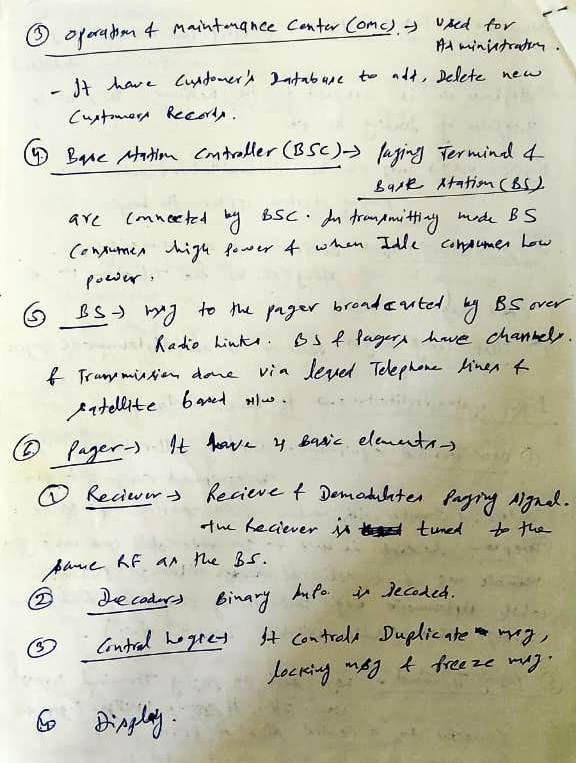 ③ Operation & Maintenance Center (OMC) → Used for
Administration.
- It have Customer's Database to add, Delete new
Customers Records.
④ Base Station Controller (BSC) → Paging Terminal &
Base Station (BS)
are connected by BSC. In transmitting mode BS
consumes high power & when Idle consumes Low
power.
⑤ BS → msg to the pager broadcasted by BS over
Radio Links. BS & Pagers have channels.
& Transmission done via leased Telephone lines &
satellite based n/w.
⑥ Pager → It have 4 Basic elements →
① Reciever → Recieve & Demodulates Paging signal.
The Reciever is tuned to the
same RF as the BS.
② Decoder → Binary Info. is Decoded.
③ Control Logic → It controls Duplicate msg,
locking msg & freeze msg.
④ Display.